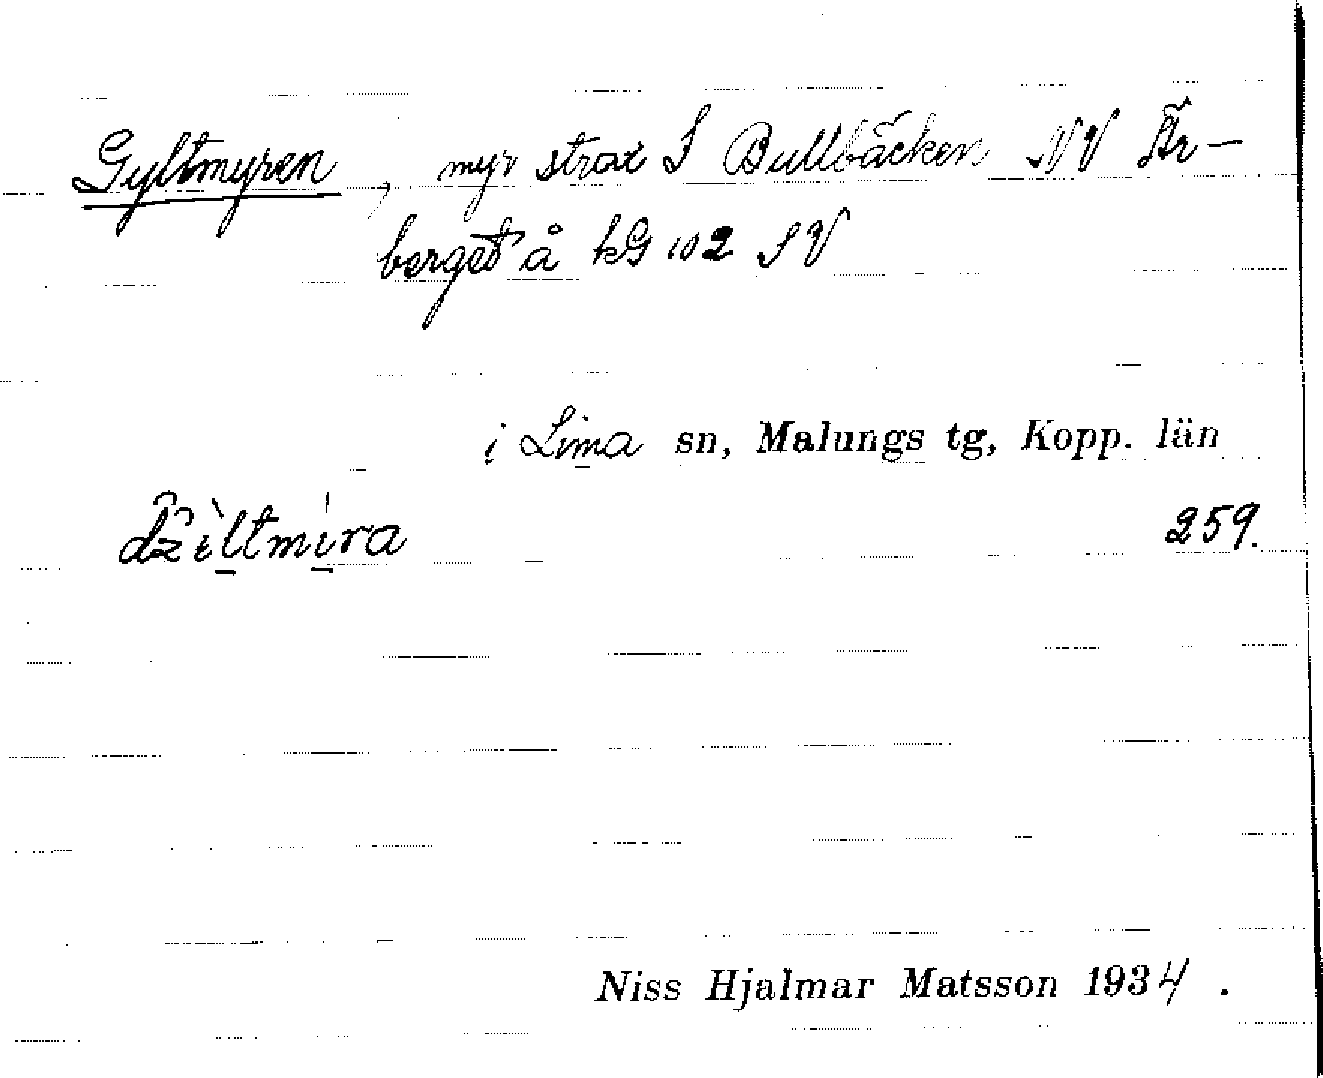 Gyltmyren, myr strax S Bullbäcken NV Är-
berget å kG 102 SV
i Lima sn, Malungs tg, Kopp. län
259.
Niss Hjalmar Matsson 1934.